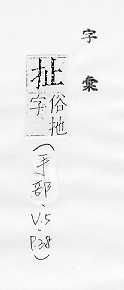 字彙
扯俗地
字
(手部、V.5、P.38)